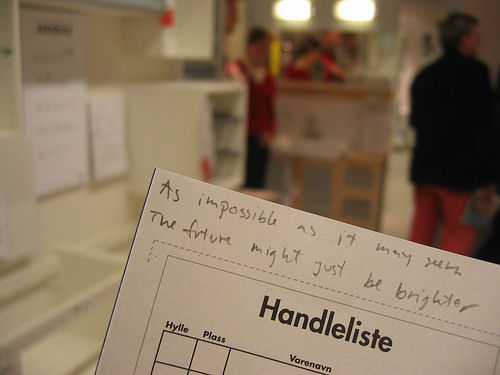 As impossible as it may seem
The future might just be brighter
Handleliste
Hylle Plass Varenavn